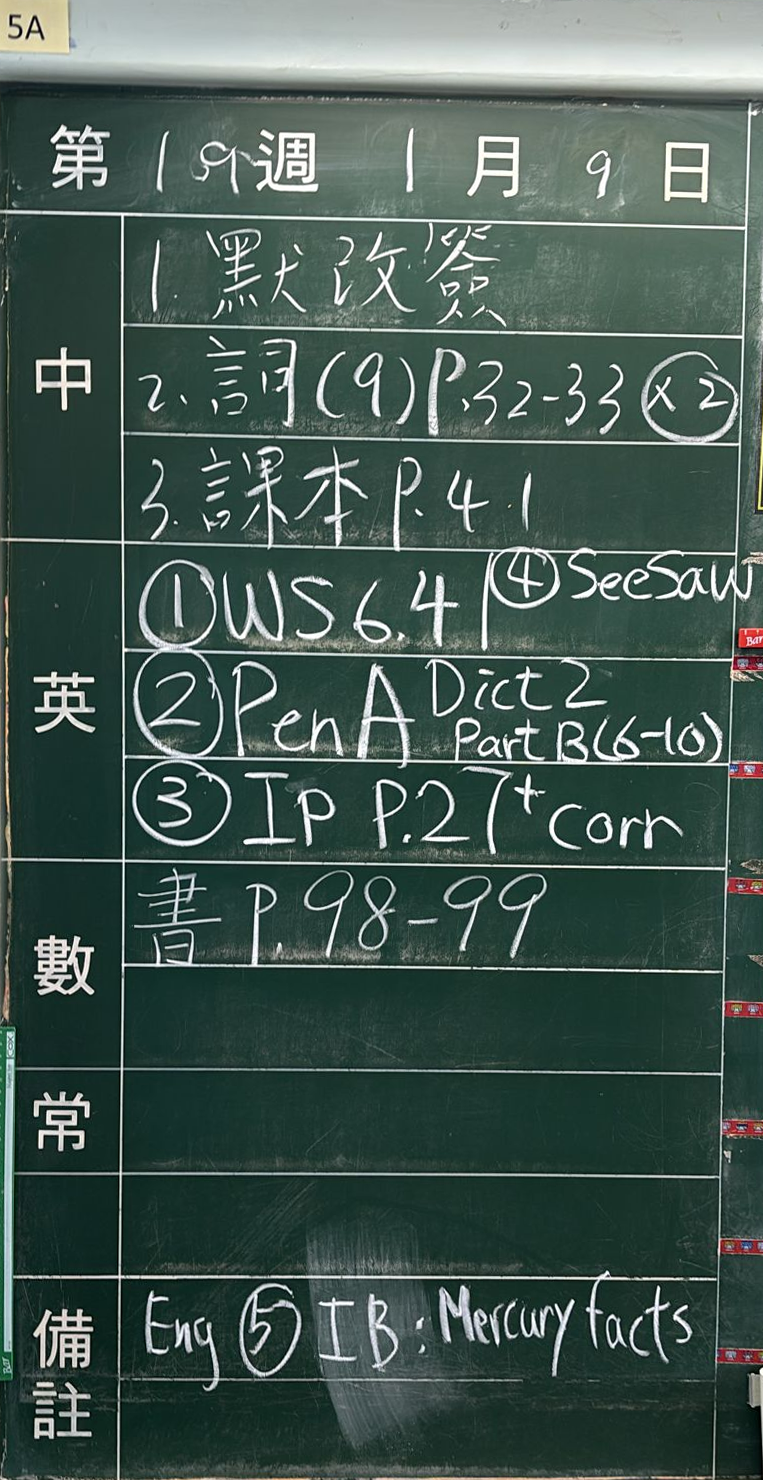 5A
第19週 1月9日
中
1. 默改簽
2. 詞(9)P.32-33 (x2)
3. 課本P.41
英
① WS 6.4 ④ SeeSaw
② Pen A Dict 2
Part B (6-10)
③ IP P.27 + corr
數
書 P.98-99
常
備註
Eng ⑤ IB: Mercury facts